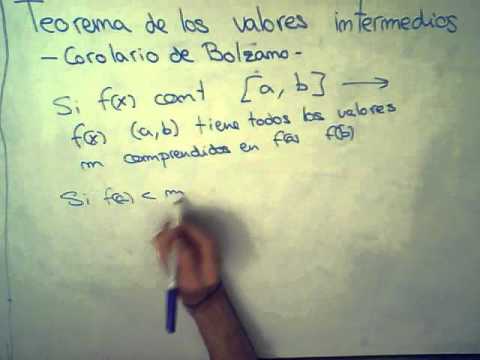 Teorema de los valores intermedios
- Corolario de Bolzano -
Si f(x) cont [a, b] →
f(x) (a,b) tiene todos los valores
m comprendidos en f(a) f(b)
Si f(a) < m